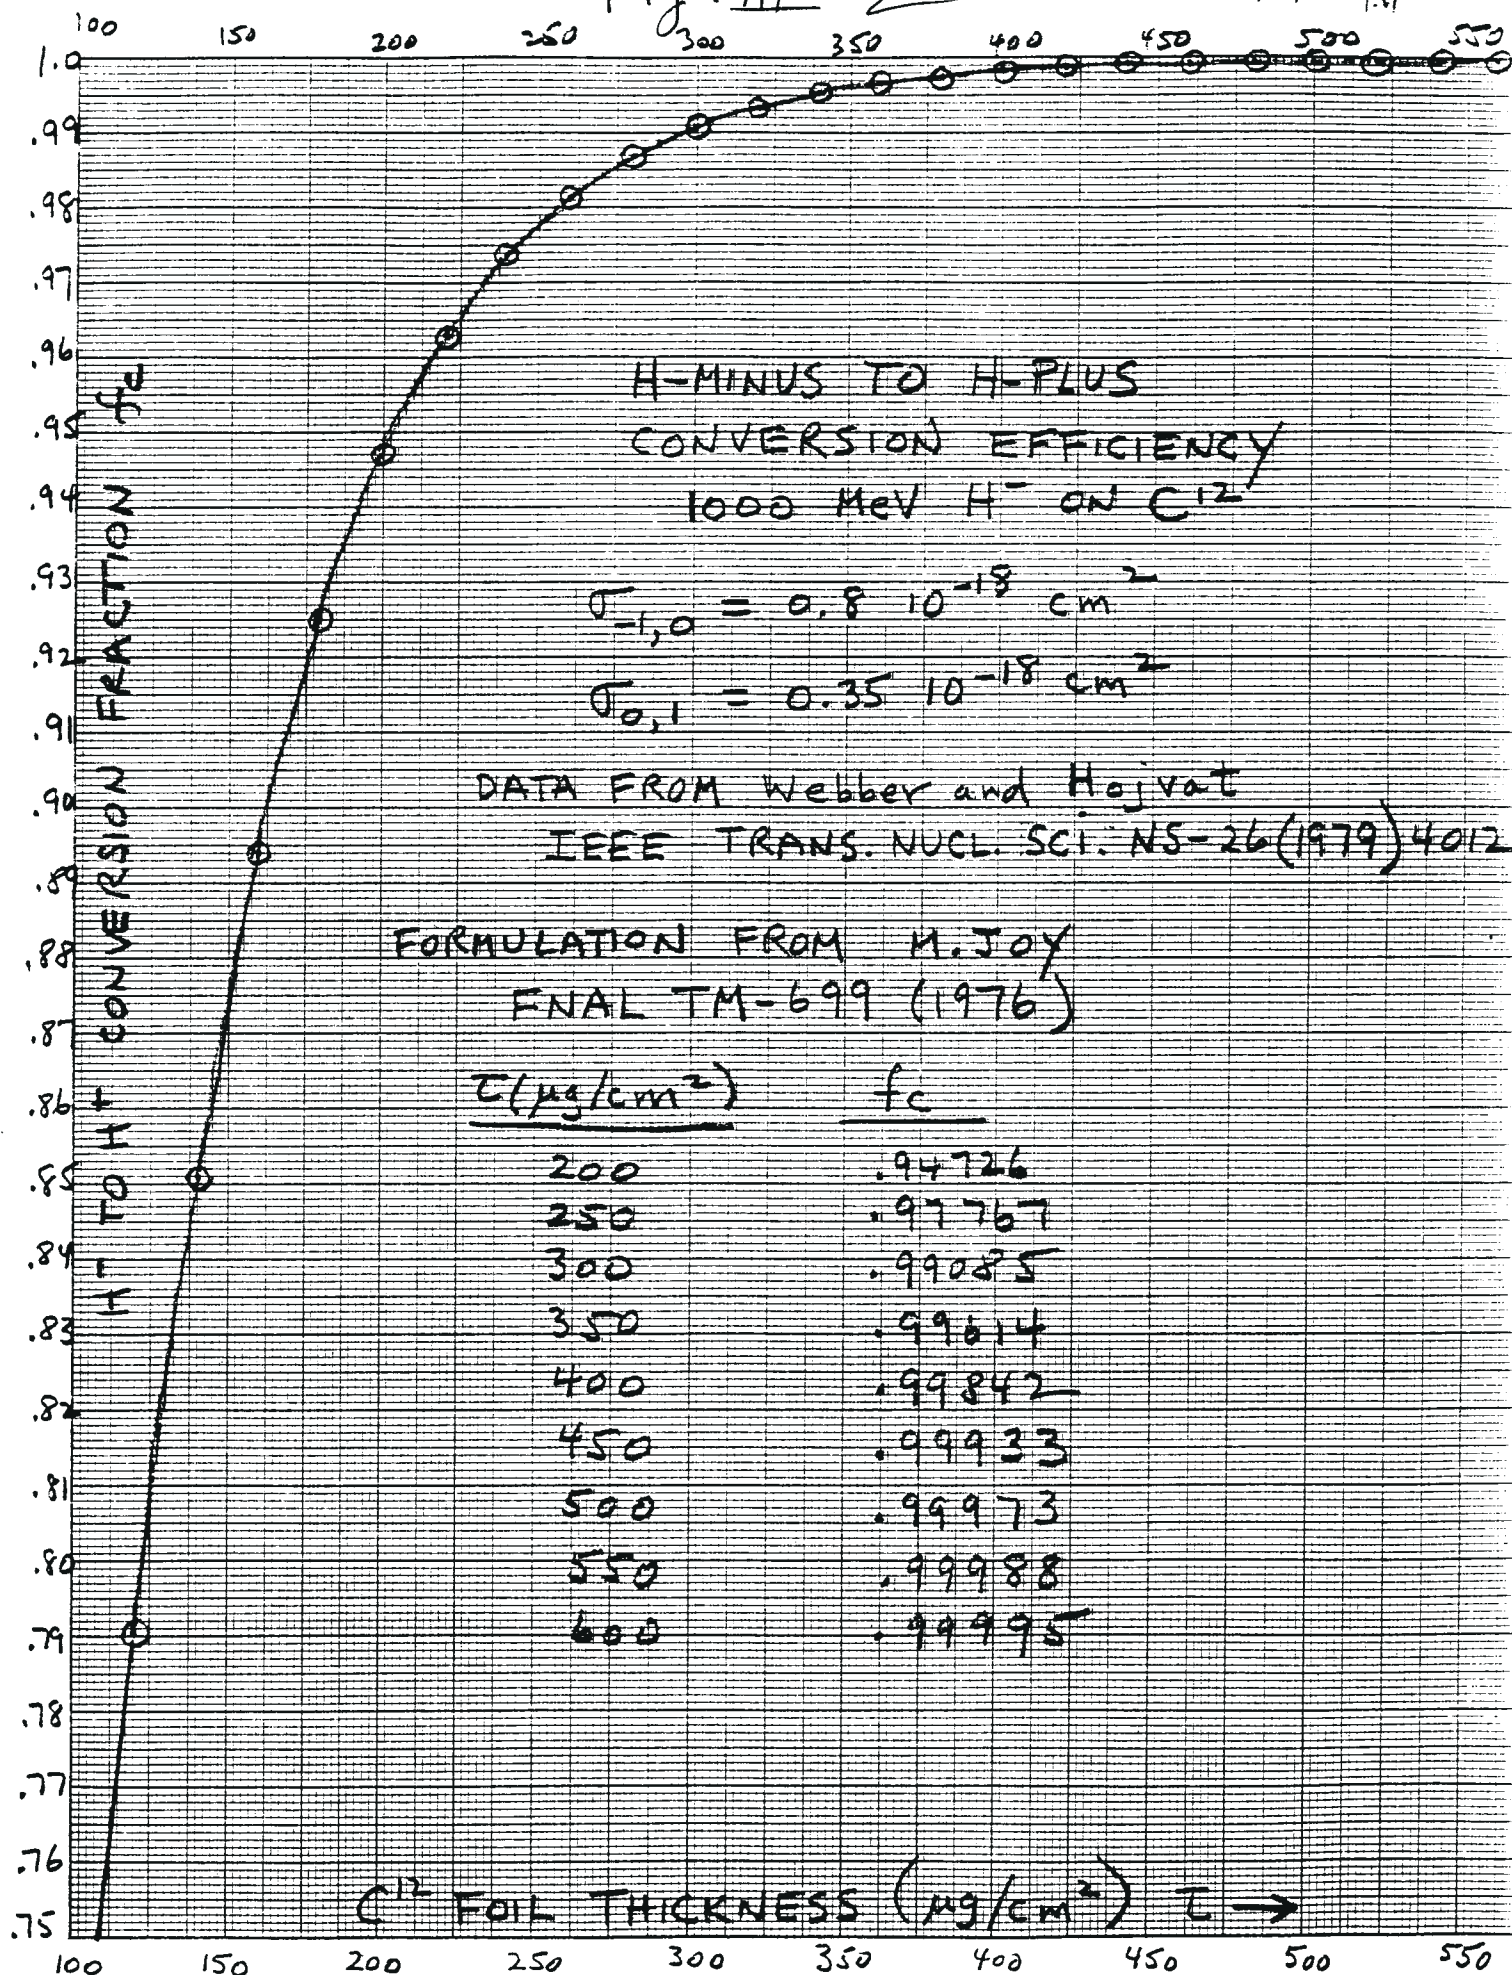 Fig.
100 150 200 250 300 350 400 450 500 550
1.0
.99
.98
.97
.96
.95
.94
.93
.92
.91
.90
.89
.88
.87
.86
.85
.84
.83
.82
.81
.80
.79
.78
.77
.76
.75
H- TO H+ CONVERSION FRACTION fc
H-MINUS TO H-PLUS
CONVERSION EFFICIENCY
1000 MeV H⁻ ON C¹²
σ₋₁,₀ = 0.8 10⁻¹⁸ cm²
σ₀,₁ = 0.35 10⁻¹⁸ cm²
DATA FROM Webber and Hojvat
IEEE TRANS. NUCL. SCI. NS-26(1979)4012
FORMULATION FROM M. JOY
FNAL TM-699 (1976)
τ(μg/cm²) fc
200 .94726
250 .97767
300 .99085
350 .99614
400 .99842
450 .99933
500 .99973
550 .99988
600 .99995
C¹² FOIL THICKNESS (μg/cm²) τ →
100 150 200 250 300 350 400 450 500 550